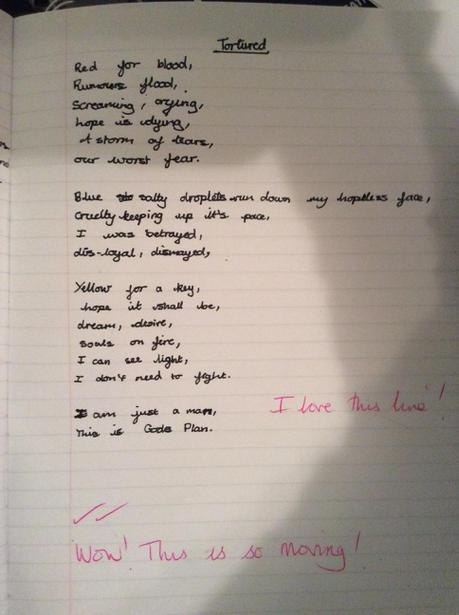 Tortured
Red for blood,
Rumours flood,
Screaming, crying,
hope is dying,
A storm of tears,
our worst fear.
Blue salty droplets run down my hopeless face,
Cruelty keeping up it's pace,
I was betrayed,
dis-loyal, dismayed,
Yellow for a key,
hope it shall be,
dream, desire,
souls on fire,
I can see light,
I don't need to fight.
I am just a man,
I love this line!
This is Gods Plan.
Wow! This is so moving!